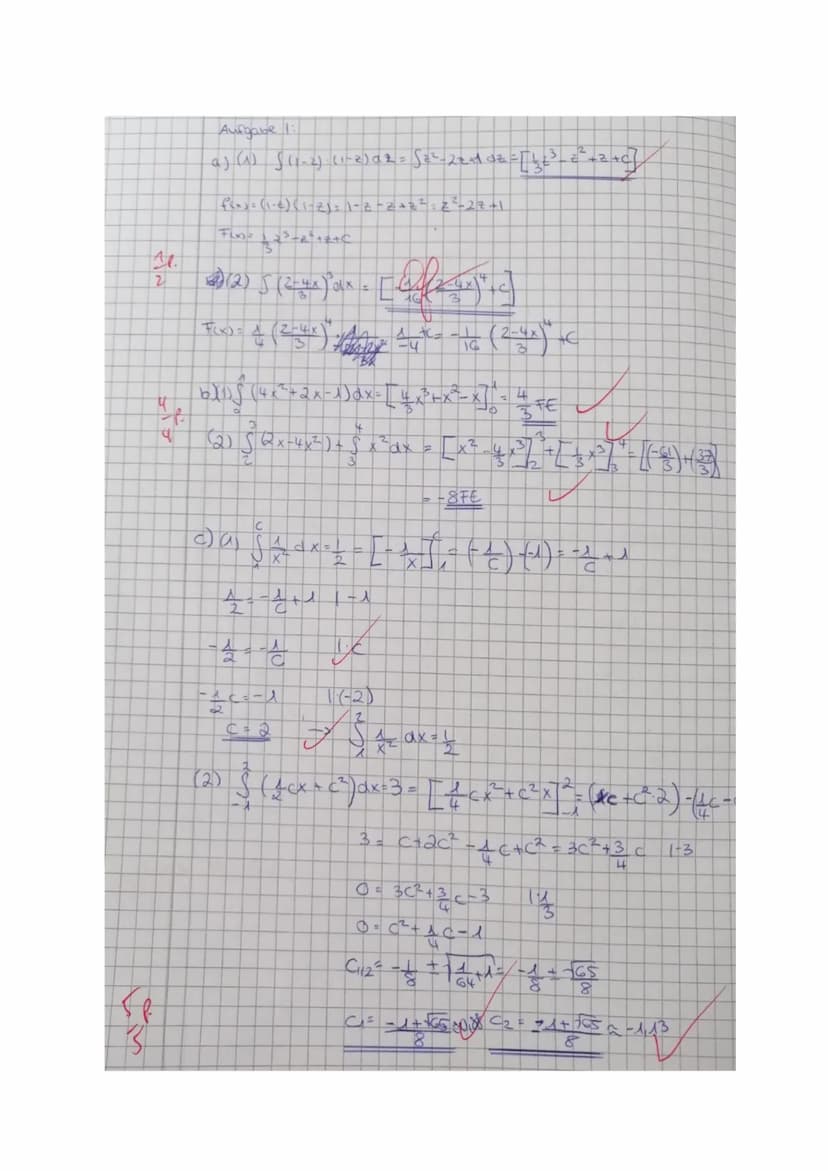 Aufgabe 1:
a) (1) ∫(1-z)·(1-z)dz = ∫z²-2z+1 dz = [1/3z³-z²+z+c]
f(x)=(1-z)(1-z)=1-z-z+z²=z²-2z+1
F(x)=1/3z³-z²+z+c
1P./2
(2) ∫(2-4x/3)³dx = [-1/16(2-4x/3)⁴+c] f
F(x)=1/4(2-4x/3)⁴· 1/-4+c=-1/16(2-4x/3)⁴+c
b)(1) ∫₀¹(4x²+2x-1)dx=[4/3x³+x²-x]₀¹=4/3FE
4/4 P.
(2) ∫₂³(2x-4x²)+∫₃⁴x²dx = [x²-4/3x³]₂³+[1/3x³]₃⁴=[(-61/3)+(37/3)]
=-8FE
c)(1) ∫₁ᶜ1/x²dx=1/2=[-1/x]₁ᶜ=(-1/c)-(-1)=-1/c+1
1/2=-1/c+1 |-1
-1/2=-1/c |·c
-1/2c=-1 |·(-2)
c=2 → ∫₁²1/x²dx=1/2
(2) ∫₋₁²(1/2cx+c²)dx=3=[1/4cx²+c²x]₋₁²=(c+c²·2)-(1/4c-
3=c+2c²-1/4c+c²=3c²+3/4c |-3
0=3c²+3/4c-3 |·1/3
0=c²+1/4c-1
c₁,₂=-1/8±√(1/64+1)=-1/8±√65/8
5P./5
c₁=-1+√65/8 c₂=-1+√65/8≈-1,13